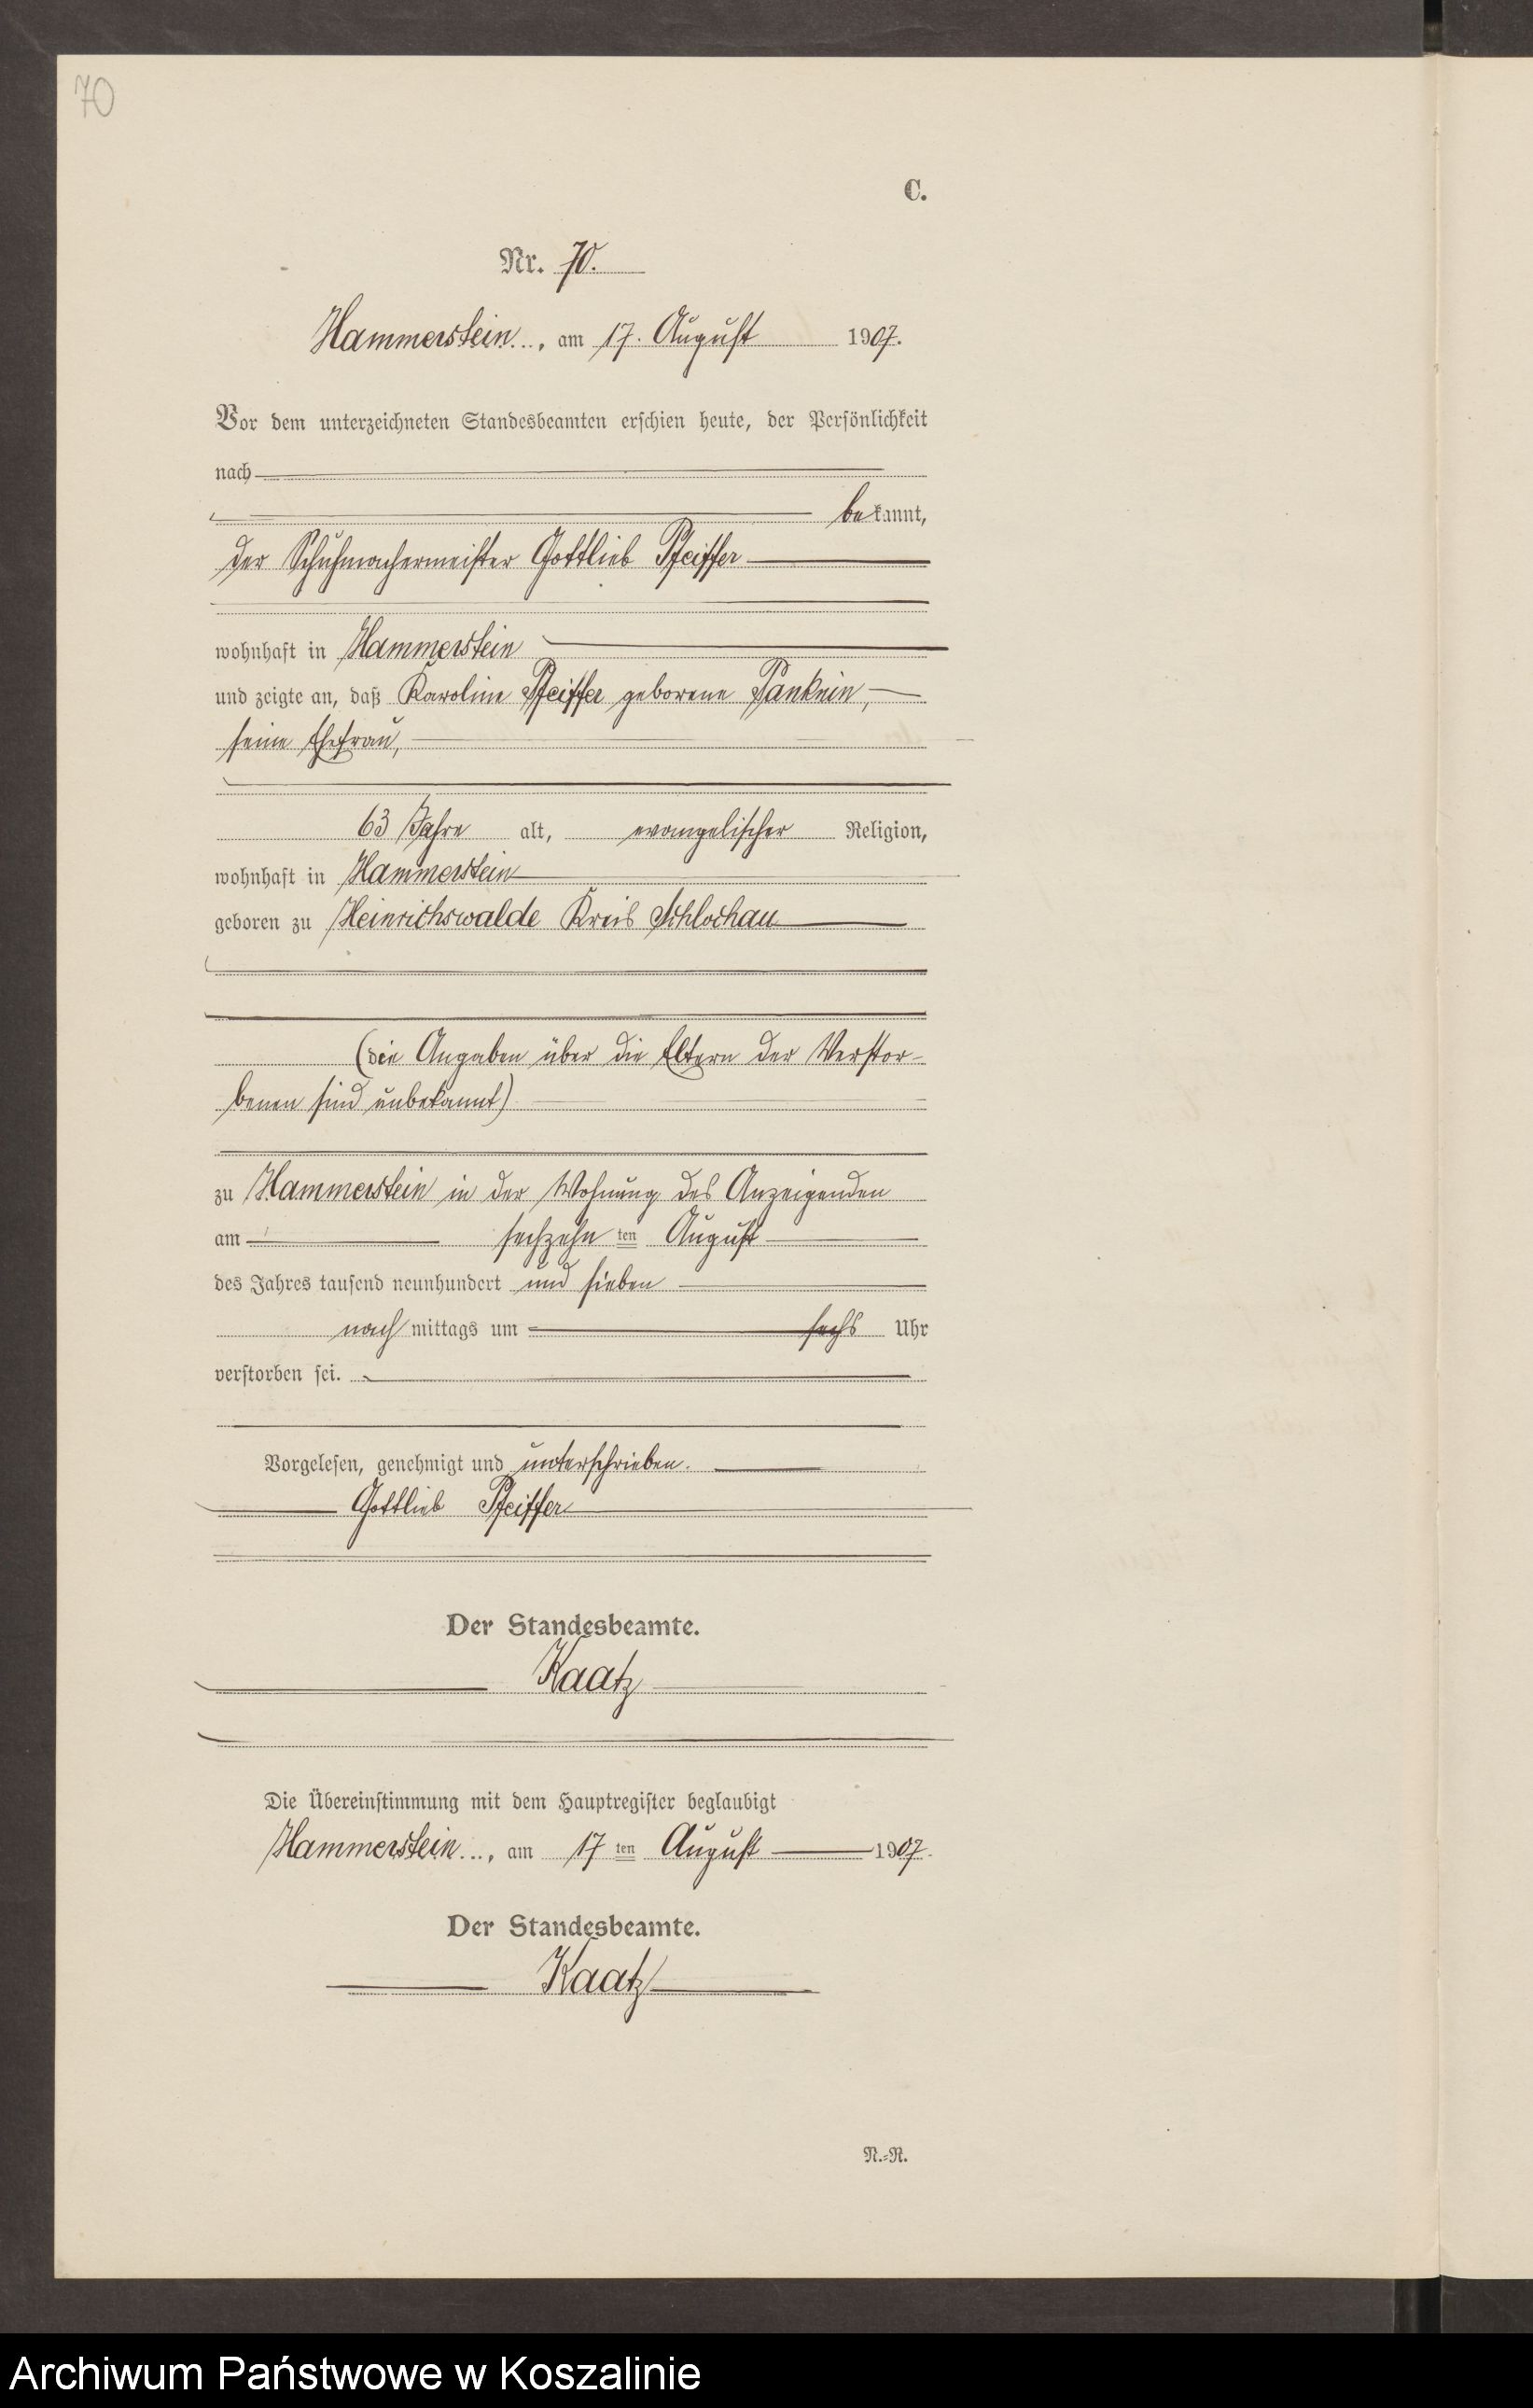 70
C.
Nr. 70.
Hammerstein, am 17. August 1907.
Vor dem unterzeichneten Standesbeamten erschien heute, der Persönlichkeit
nach
bekannt,
der Schuhmachermeister Gottlieb Pfeiffer
wohnhaft in Hammerstein
und zeigte an, daß Karoline Pfeiffer geborene Panknin,
seine Ehefrau,
63 Jahre alt, evangelischer Religion,
wohnhaft in Hammerstein
geboren zu Heinrichswalde Kreis Schlochau
(die Angaben über die Eltern der Verstor-
benen sind unbekannt)
zu Hammerstein in der Wohnung des Anzeigenden
am sechzehn ten August
des Jahres tausend neunhundert und sieben
nach mittags um sechs Uhr
verstorben sei.
Vorgelesen, genehmigt und unterschrieben.
Gottlieb Pfeiffer
Der Standesbeamte.
Kaatz
Die Übereinstimmung mit dem Hauptregister beglaubigt
Hammerstein, am 17 ten August 1907.
Der Standesbeamte.
Kaatz
N.-R.
Archiwum Państwowe w Koszalinie